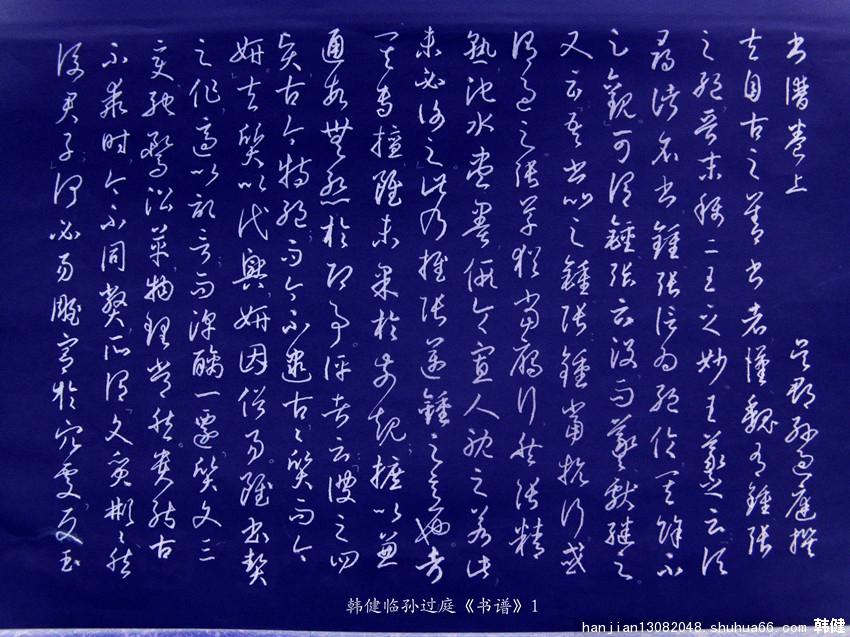 書譜卷上 吳郡孫過庭撰
夫自古之善書者漢魏有鍾張
之絕晉末稱二王之妙王羲之云頃
尋諸名書鍾張信為絕倫其餘不
足觀可謂鍾張云沒而羲獻繼之
又云吾書比之鍾張鍾當抗行或
謂過之張草猶當鴈行然張精
熟池水盡墨假令寡人耽之若此
未必謝之此乃推張邁鍾之意也考
其專擅雖未果於前規摭以兼
通故無慙於即事評者云彼之四
賢古今特絕而今不逮古々質而今
妍夫質以代興妍因俗易雖書契
之作適以記言而淳醨一遷質文三
變馳鶩沿革物理常然貴能古
不乖時今不同弊所謂文質彬々然
後君子何必易雕宮於穴處反玉
韩健临孙过庭《书谱》1
hanjian13082048.shuhua66.com 韩健